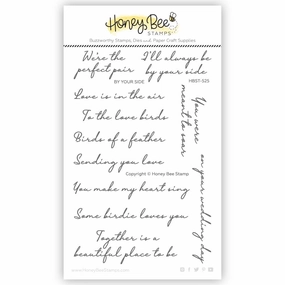 Honey Bee
STAMPS
Buzzworthy Stamps, Dies and Paper Craft Supplies
We're the
perfect pair
I'll always be
by your side
BY YOUR SIDE
HBST-525
Love is in the air
To the love birds
Birds of a feather
Sending you love
Copyright © Honey Bee Stamp
You make my heart sing
Some birdie loves you
Together is a
beautiful place to be
You were
meant to soar
on your wedding day
www.HoneyBeeStamps.com